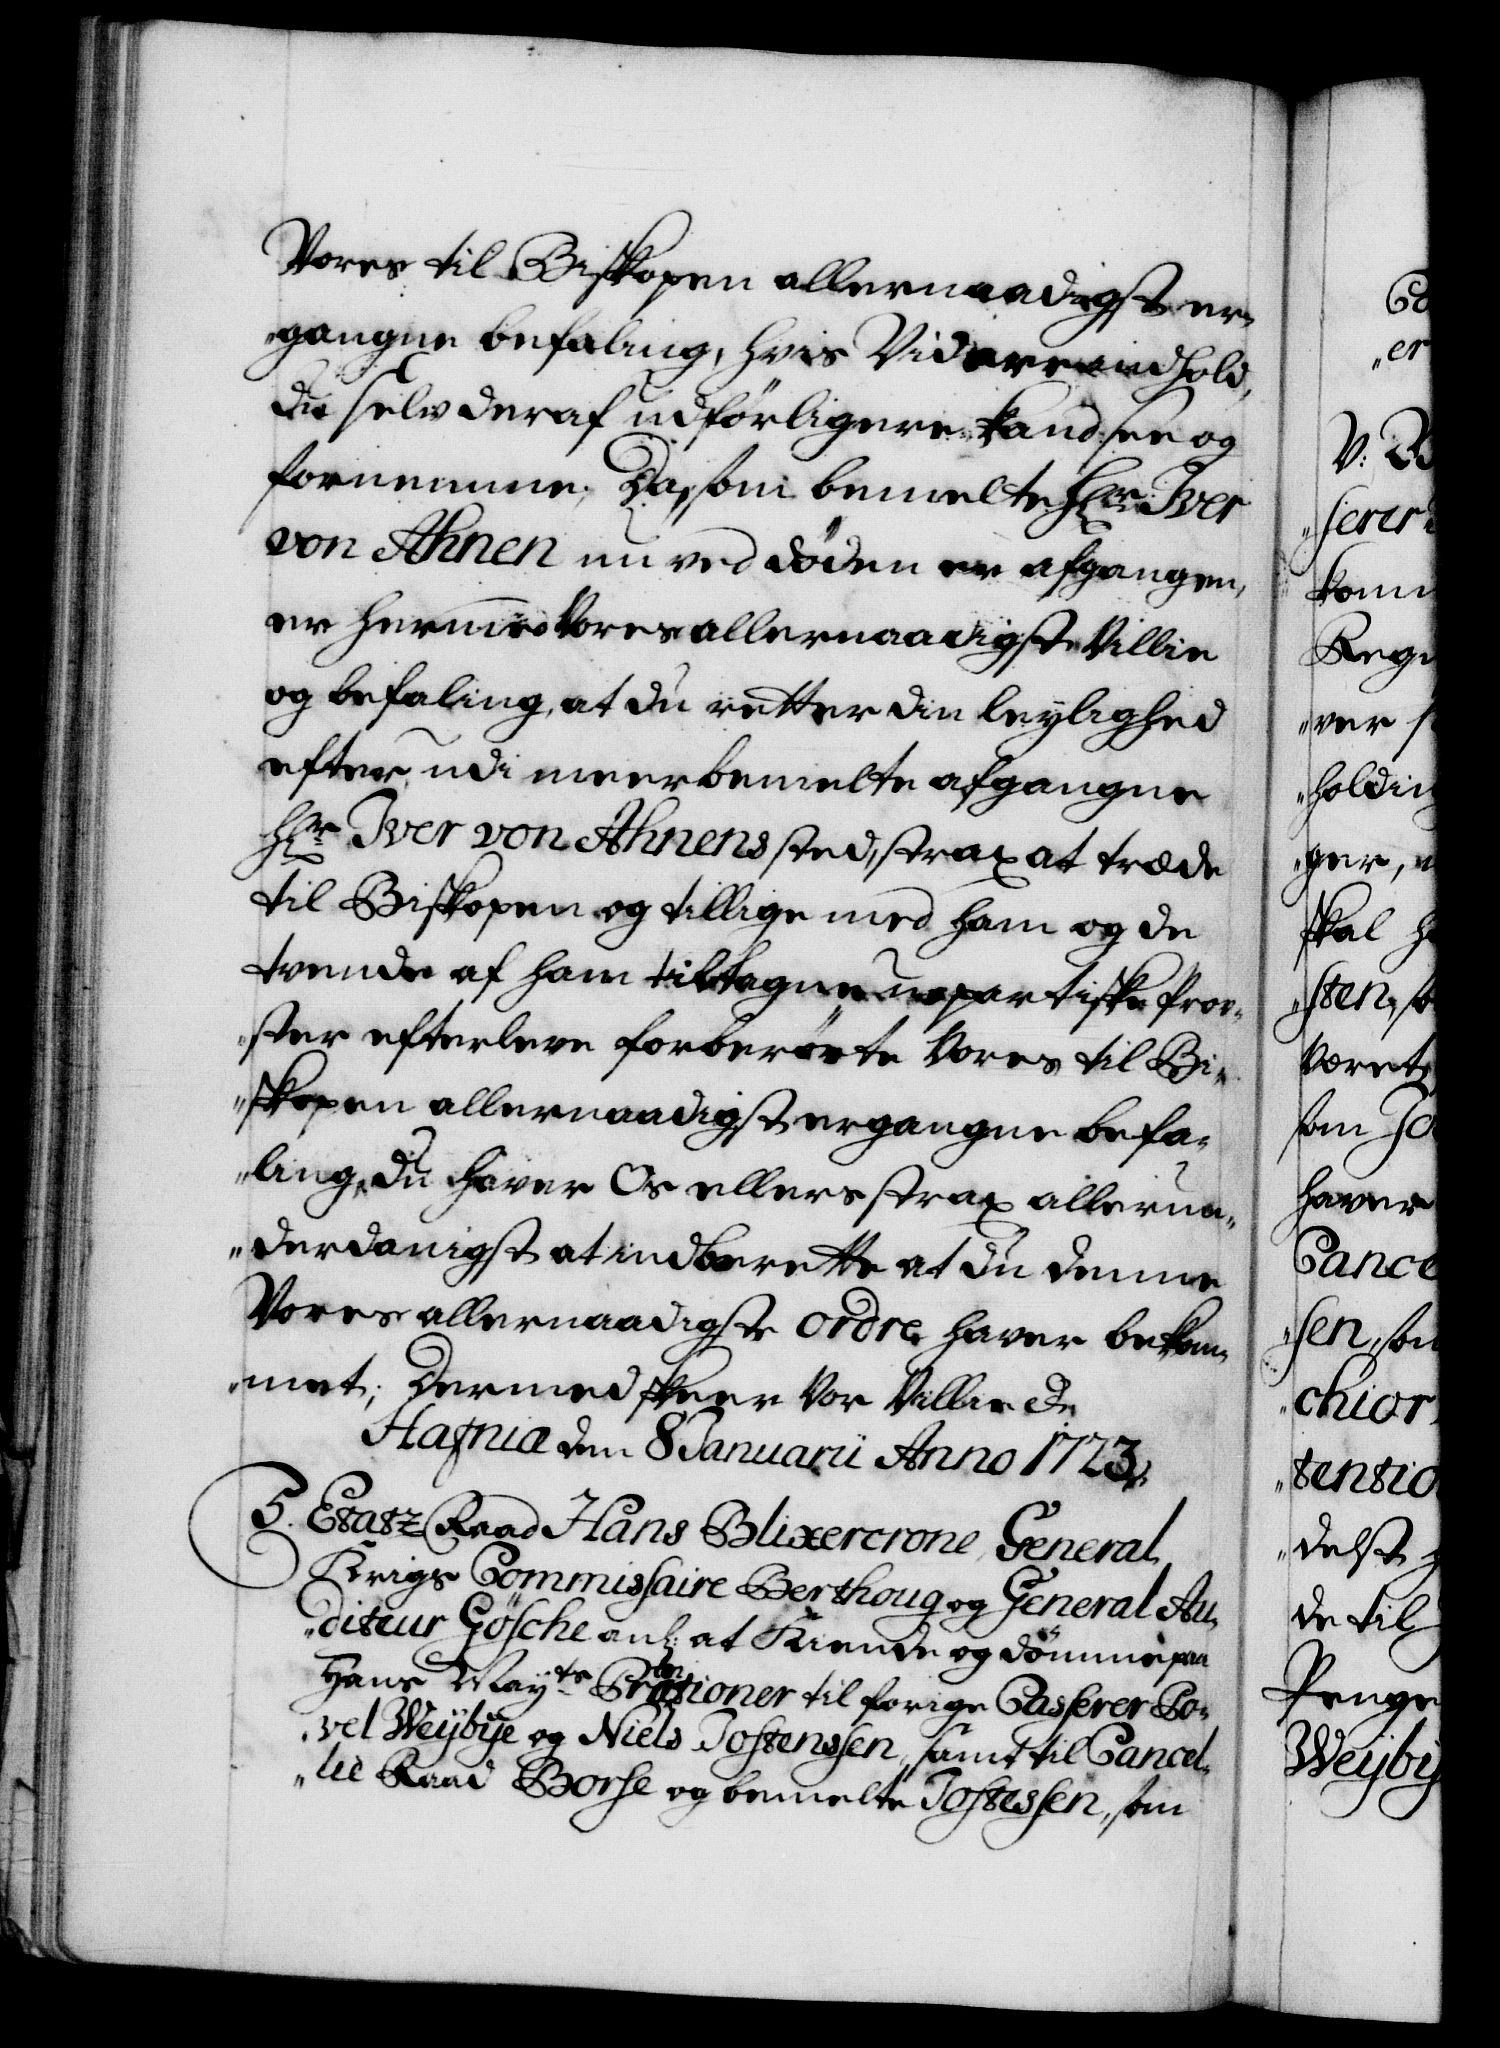 Vores til Biskopen allernaadigst er-
"gangne befaling, hvis Videre indhold,
du selv deraf udførligere kand see og
fornemme; Da, som bemelte Hr. Iver
von Ahnen nu ved døden er afgangen,
er hermed Vores allernaadigste Villie
og befaling, at du retter din leylighed
efter, udi meerbemelte afgangne
Hr. Iver von Ahnens sted, strax at træde
til Biskopen og tillige med ham og de
tvende af ham tiltagne upartiske Prov-
"ster efterleve forberørte Vores til Bi-
"skopen allernaadigst ergangne befa-
"ling, du haver Os ellers strax allerun-
"derdanigst at indberette at du denne
Vores allernaadigste ordre haver bekom-
"met; Dermed skeer Vor Villie etc.
Hafniæ den 8 Januarii Anno 1723.
5. Etatz Raad Hans Blixercrone, General
Krigs Commissaire Berthoug og General Au-
"diteur Gösche anl: at Kiende og dømme paa
Hans Mayts Prætensioner til forige Casserer Po-
"vel Weÿbÿe og Niels Jostenssen, samt til Cancel-
"lie Raad Borse og bemelte Jostessen, som
Co
"er
V: B
"serer
komm
Regn
"ver
"holding
"ger,
skal
"sten,
været
som Jo
haver
Cance
"sen, som
chior
"tentio
"delst
de til
Penge
Weÿbÿ